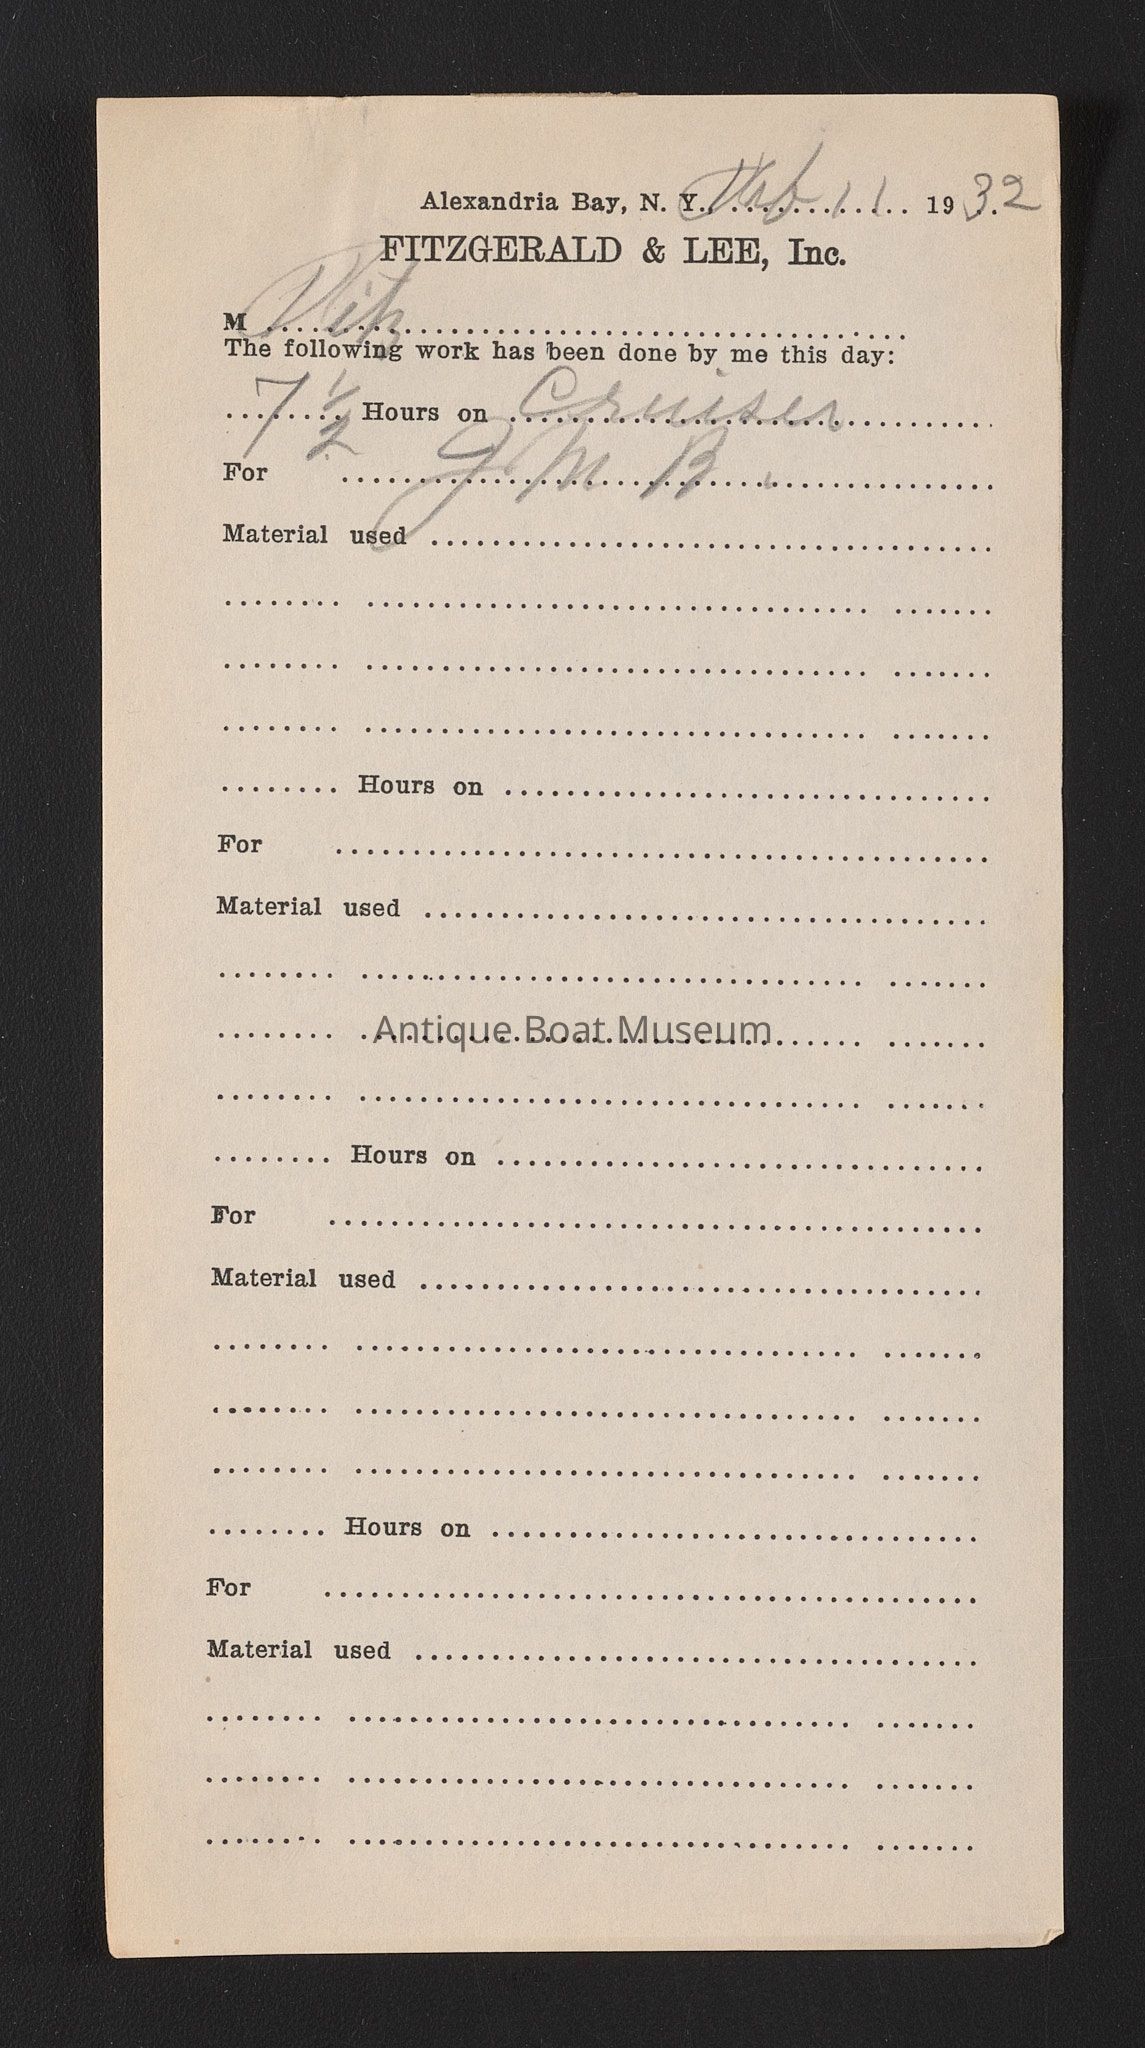 Alexandria Bay, N. Y. Feb 11 1932
FITZGERALD & LEE, Inc.
M Fitz
The following work has been done by me this day:
7 1/2 Hours on Cruiser
For J M B.
Material used
Hours on
For
Material used
Antique Boat Museum
Hours on
For
Material used
Hours on
For
Material used